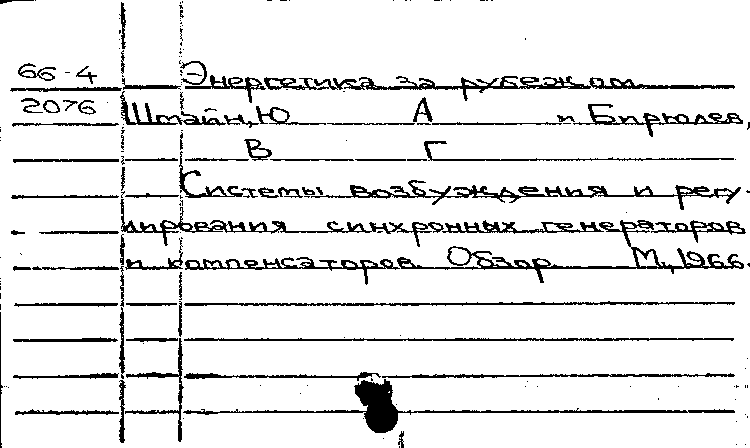 66-4 Энергетика за рубежом
2076 Штайн, Ю А и Бирюлев,
В Г
Системы возбуждения и регу-
лирования синхронных генераторов
и компенсаторов. Обзор М., 1966.